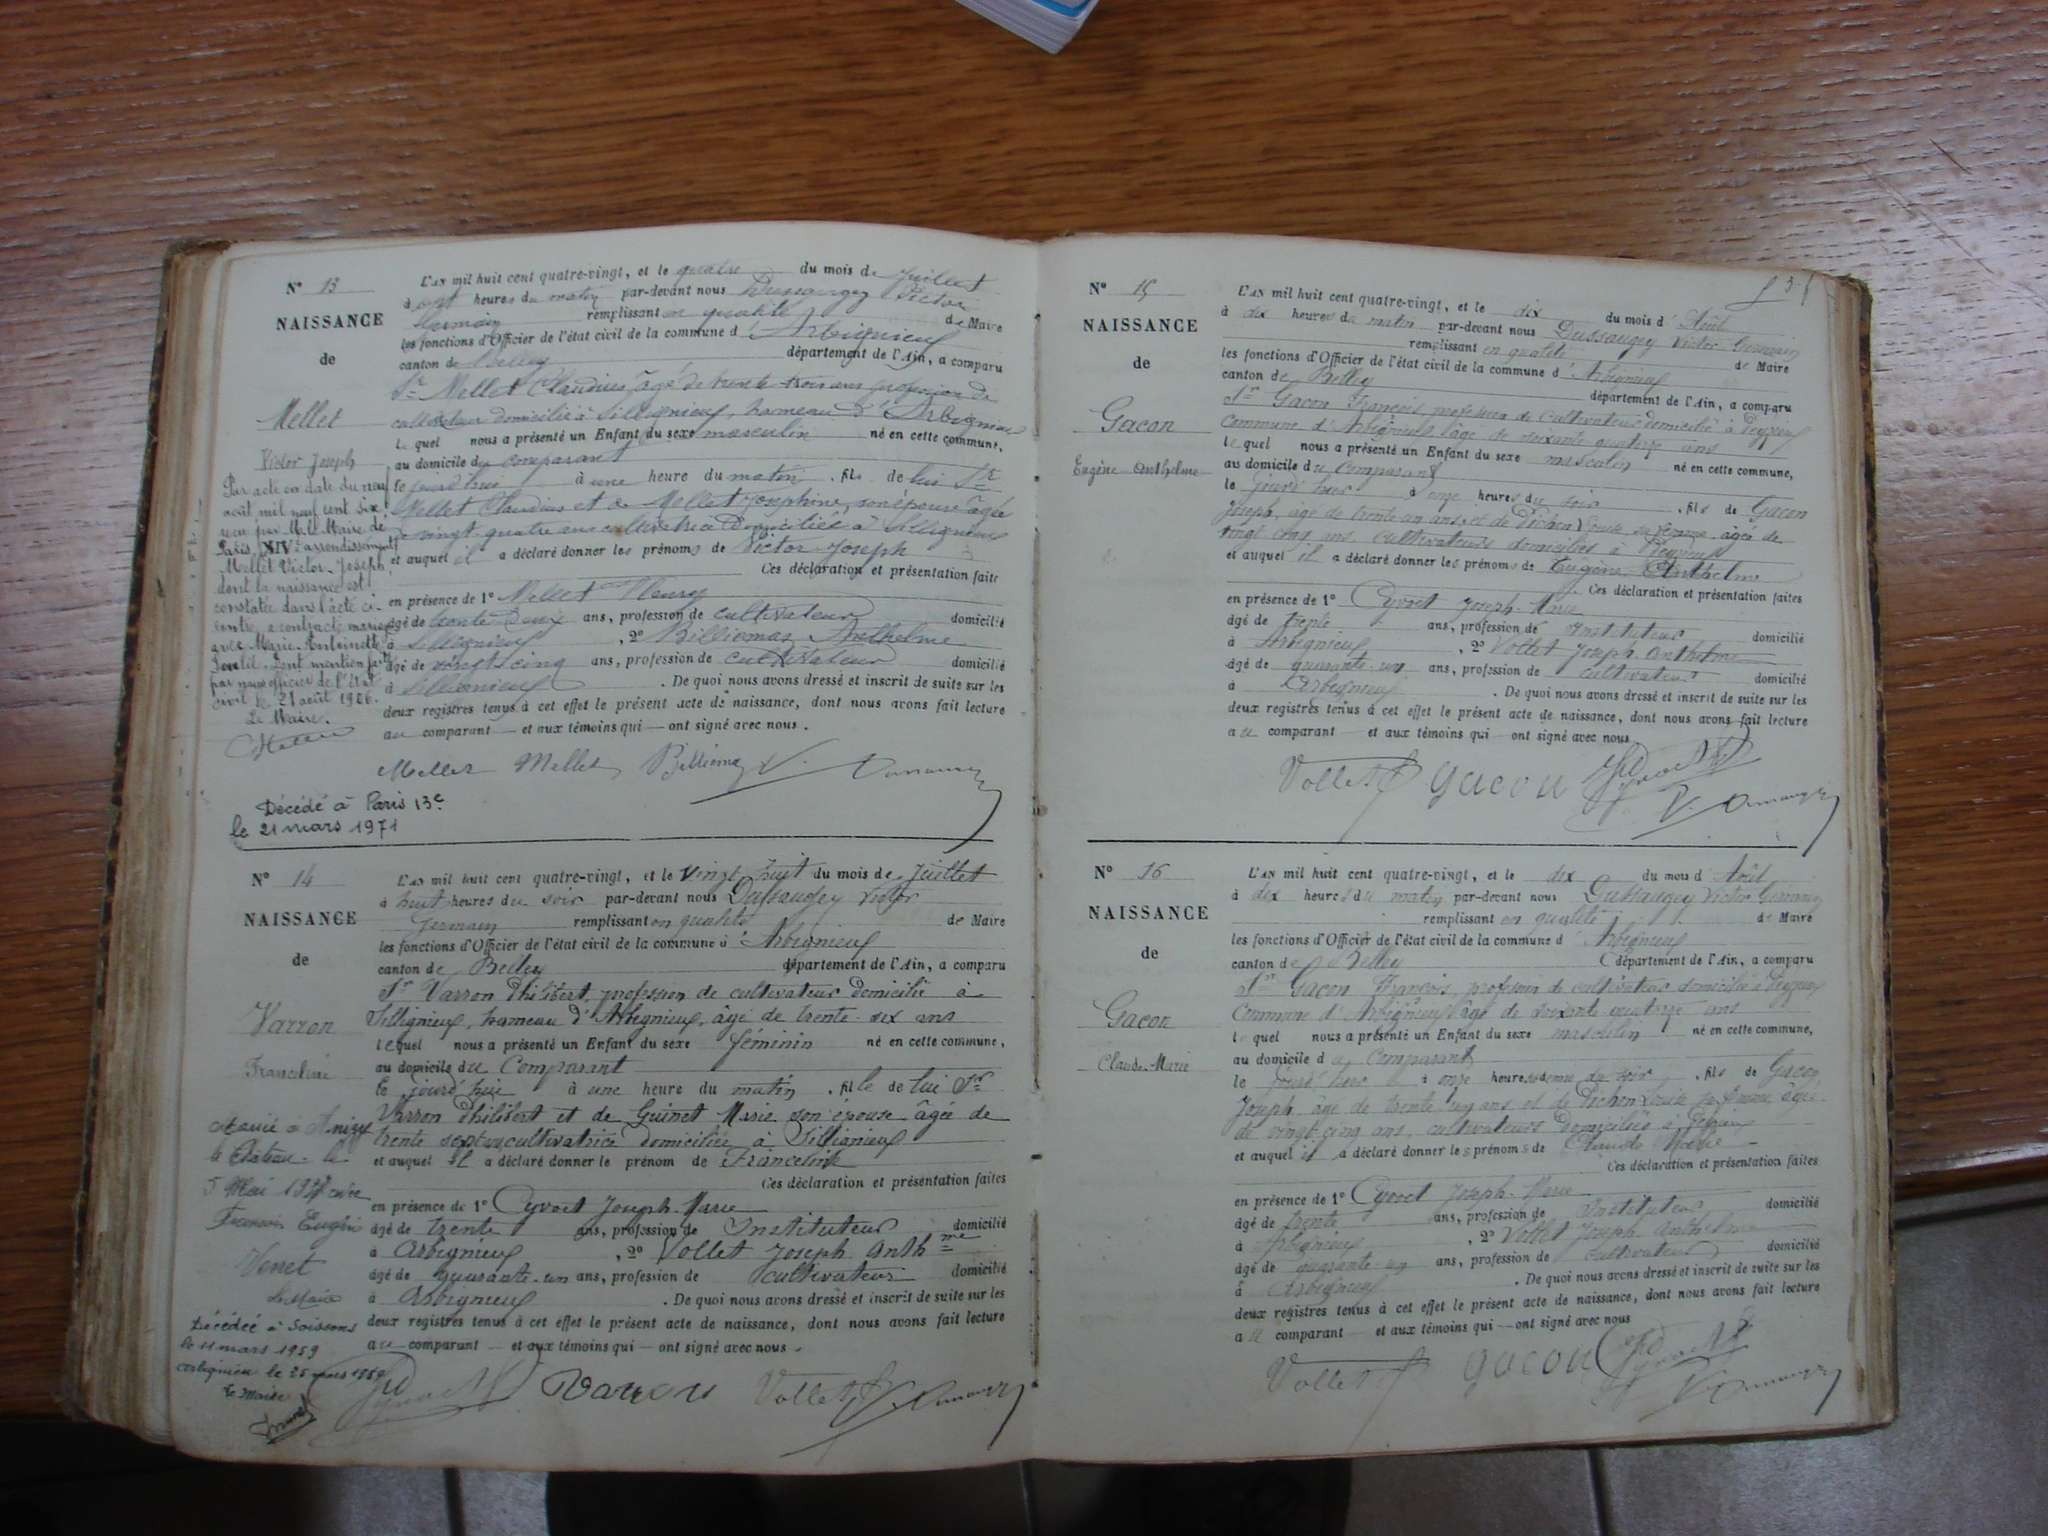 N° 13
NAISSANCE
de
Mellet
Victor Joseph
Par acte en date du neuf
août mil neuf cent six
reçu par M. le Maire de
Paris, XIVe arrondissement
Mellet Victor-Joseph,
dont la naissance est
constatée dans l'acte ci-
contre, a contracté mariage
avec Marie-Antoinette
dont mention faite
par nous officier de l'état
civil le 21 août 1906.
Le Maire.
Décédé à Paris 13e
le 21 mars 1971
L'AN mil huit cent quatre-vingt, et le quatre du mois de Juillet
à heures du matin par-devant nous Dussaugey Victor
Germain remplissant en qualité de Maire
les fonctions d'Officier de l'état civil de la commune d'Arbignieu
canton de Belley département de l'Ain, a comparu
Sr Mellet Claudius âgé de trente-trois ans profession de
cultivateur domicilié à Sillignieu, hameau d'Arbignieu
lequel nous a présenté un Enfant du sexe masculin né en cette commune,
au domicile du comparant
le jourd'hui à une heure du matin, fils de lui Sr
Mellet Claudius et de Mellet Josephine, son épouse âgée
de vingt quatre ans cultivatrice domiciliée à Sillignieu
et auquel il a déclaré donner les prénoms de Victor Joseph
Ces déclaration et présentation faites
en présence de 1° Mellet Fleury
âgé de trente deux ans, profession de cultivateur domicilié
à Sillignieu, 2° Billiemaz Anthelme
âgé de vingt cinq ans, profession de cultivateur domicilié
à Sillignieu. De quoi nous avons dressé et inscrit de suite sur les
deux registres tenus à cet effet le présent acte de naissance, dont nous avons fait lecture
au comparant — et aux témoins qui — ont signé avec nous.
Mellet Mellet Billiemaz V. Dussaugey
N° 14
NAISSANCE
de
Varron
Franceline
Mariée à Anizy
le Château le
5 Mai avec
François Eugène
Venet
Le Maire
Décédée à Soissons
le 11 mars 1959
Arbignieu le 25 mars 1959
Le Maire
L'AN mil huit cent quatre-vingt, et le vingt huit du mois de Juillet
à huit heures du soir par-devant nous Dussaugey Victor
Germain remplissant en qualité de Maire
les fonctions d'Officier de l'état civil de la commune d'Arbignieu
canton de Belley département de l'Ain, a comparu
Sr Varron Philibert, profession de cultivateur domicilié à
Sillignieu, hameau d'Arbignieu, âgé de trente-six ans
lequel nous a présenté un Enfant du sexe féminin né en cette commune,
au domicile du Comparant
le jourd'hui à une heure du matin, fille de lui Sr
Varron Philibert et de Guinet Marie son épouse âgée de
trente sept ans cultivatrice domiciliée à Sillignieu
et auquel il a déclaré donner le prénom de Franceline
Ces déclaration et présentation faites
en présence de 1° Cyvoct Joseph-Marie
âgé de trente ans, profession de Instituteur domicilié
à Arbignieu, 2° Vollet Joseph Anthme
âgé de quarante-un ans, profession de cultivateur domicilié
à Arbignieu. De quoi nous avons dressé et inscrit de suite sur les
deux registres tenus à cet effet le présent acte de naissance, dont nous avons fait lecture
au comparant — et aux témoins qui — ont signé avec nous.
Varron Vollet V. Dussaugey
N° 15
NAISSANCE
de
Gacon
Eugène Anthelme
L'AN mil huit cent quatre-vingt, et le dix du mois d'Août
à dix heures du matin par-devant nous Dussaugey Victor Germain
remplissant en qualité de Maire
les fonctions d'Officier de l'état civil de la commune d'Arbignieu
canton de Belley département de l'Ain, a comparu
Sr Gacon François, profession de cultivateur domicilié à Peyzieu
Commune d'Arbignieu âgé de soixante quatorze ans
lequel nous a présenté un Enfant du sexe masculin né en cette commune,
au domicile du Comparant
le jourd'hier à onze heures du soir, fils de Gacon
Joseph, âgé de trente un ans et de Pichon Louise sa femme âgée de
vingt cinq ans, cultivateurs domiciliés à Peyzieu
et auquel il a déclaré donner les prénoms de Eugène Anthelme
Ces déclaration et présentation faites
en présence de 1° Cyvoct Joseph-Marie
âgé de trente ans, profession de Instituteur domicilié
à Arbignieu, 2° Vollet Joseph Anthelme
âgé de quarante-un ans, profession de cultivateur domicilié
à Arbignieu. De quoi nous avons dressé et inscrit de suite sur les
deux registres tenus à cet effet le présent acte de naissance, dont nous avons fait lecture
au comparant — et aux témoins qui — ont signé avec nous.
Vollet Gacon V. Dussaugey
N° 16
NAISSANCE
de
Gacon
Claude-Marie
L'AN mil huit cent quatre-vingt, et le dix du mois d'Août
à dix heures du matin par-devant nous Dussaugey Victor Germain
remplissant en qualité de Maire
les fonctions d'Officier de l'état civil de la commune d'Arbignieu
canton de Belley département de l'Ain, a comparu
Sr Gacon François, profession de cultivateur domicilié à Peyzieu
Commune d'Arbignieu âgé de soixante quatorze ans
lequel nous a présenté un Enfant du sexe masculin né en cette commune,
au domicile du Comparant
le jourd'hier à onze heures et demie du soir, fils de Gacon
Joseph, âgé de trente un ans et de Pichon Louise sa femme, âgée
de vingt-cinq ans, cultivateurs domiciliés à Peyzieu
et auquel il a déclaré donner les prénoms de Claude Marie
Ces déclaration et présentation faites
en présence de 1° Cyvoct Joseph-Marie
âgé de trente ans, profession de Instituteur domicilié
à Arbignieu, 2° Vollet Joseph Anthelme
âgé de quarante-un ans, profession de cultivateur domicilié
à Arbignieu. De quoi nous avons dressé et inscrit de suite sur les
deux registres tenus à cet effet le présent acte de naissance, dont nous avons fait lecture
au comparant — et aux témoins qui — ont signé avec nous
Vollet Gacon V. Dussaugey